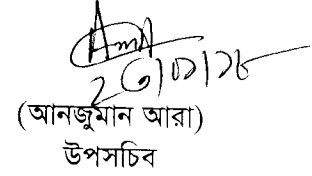 (আনজুমান আরা)
উপসচিব